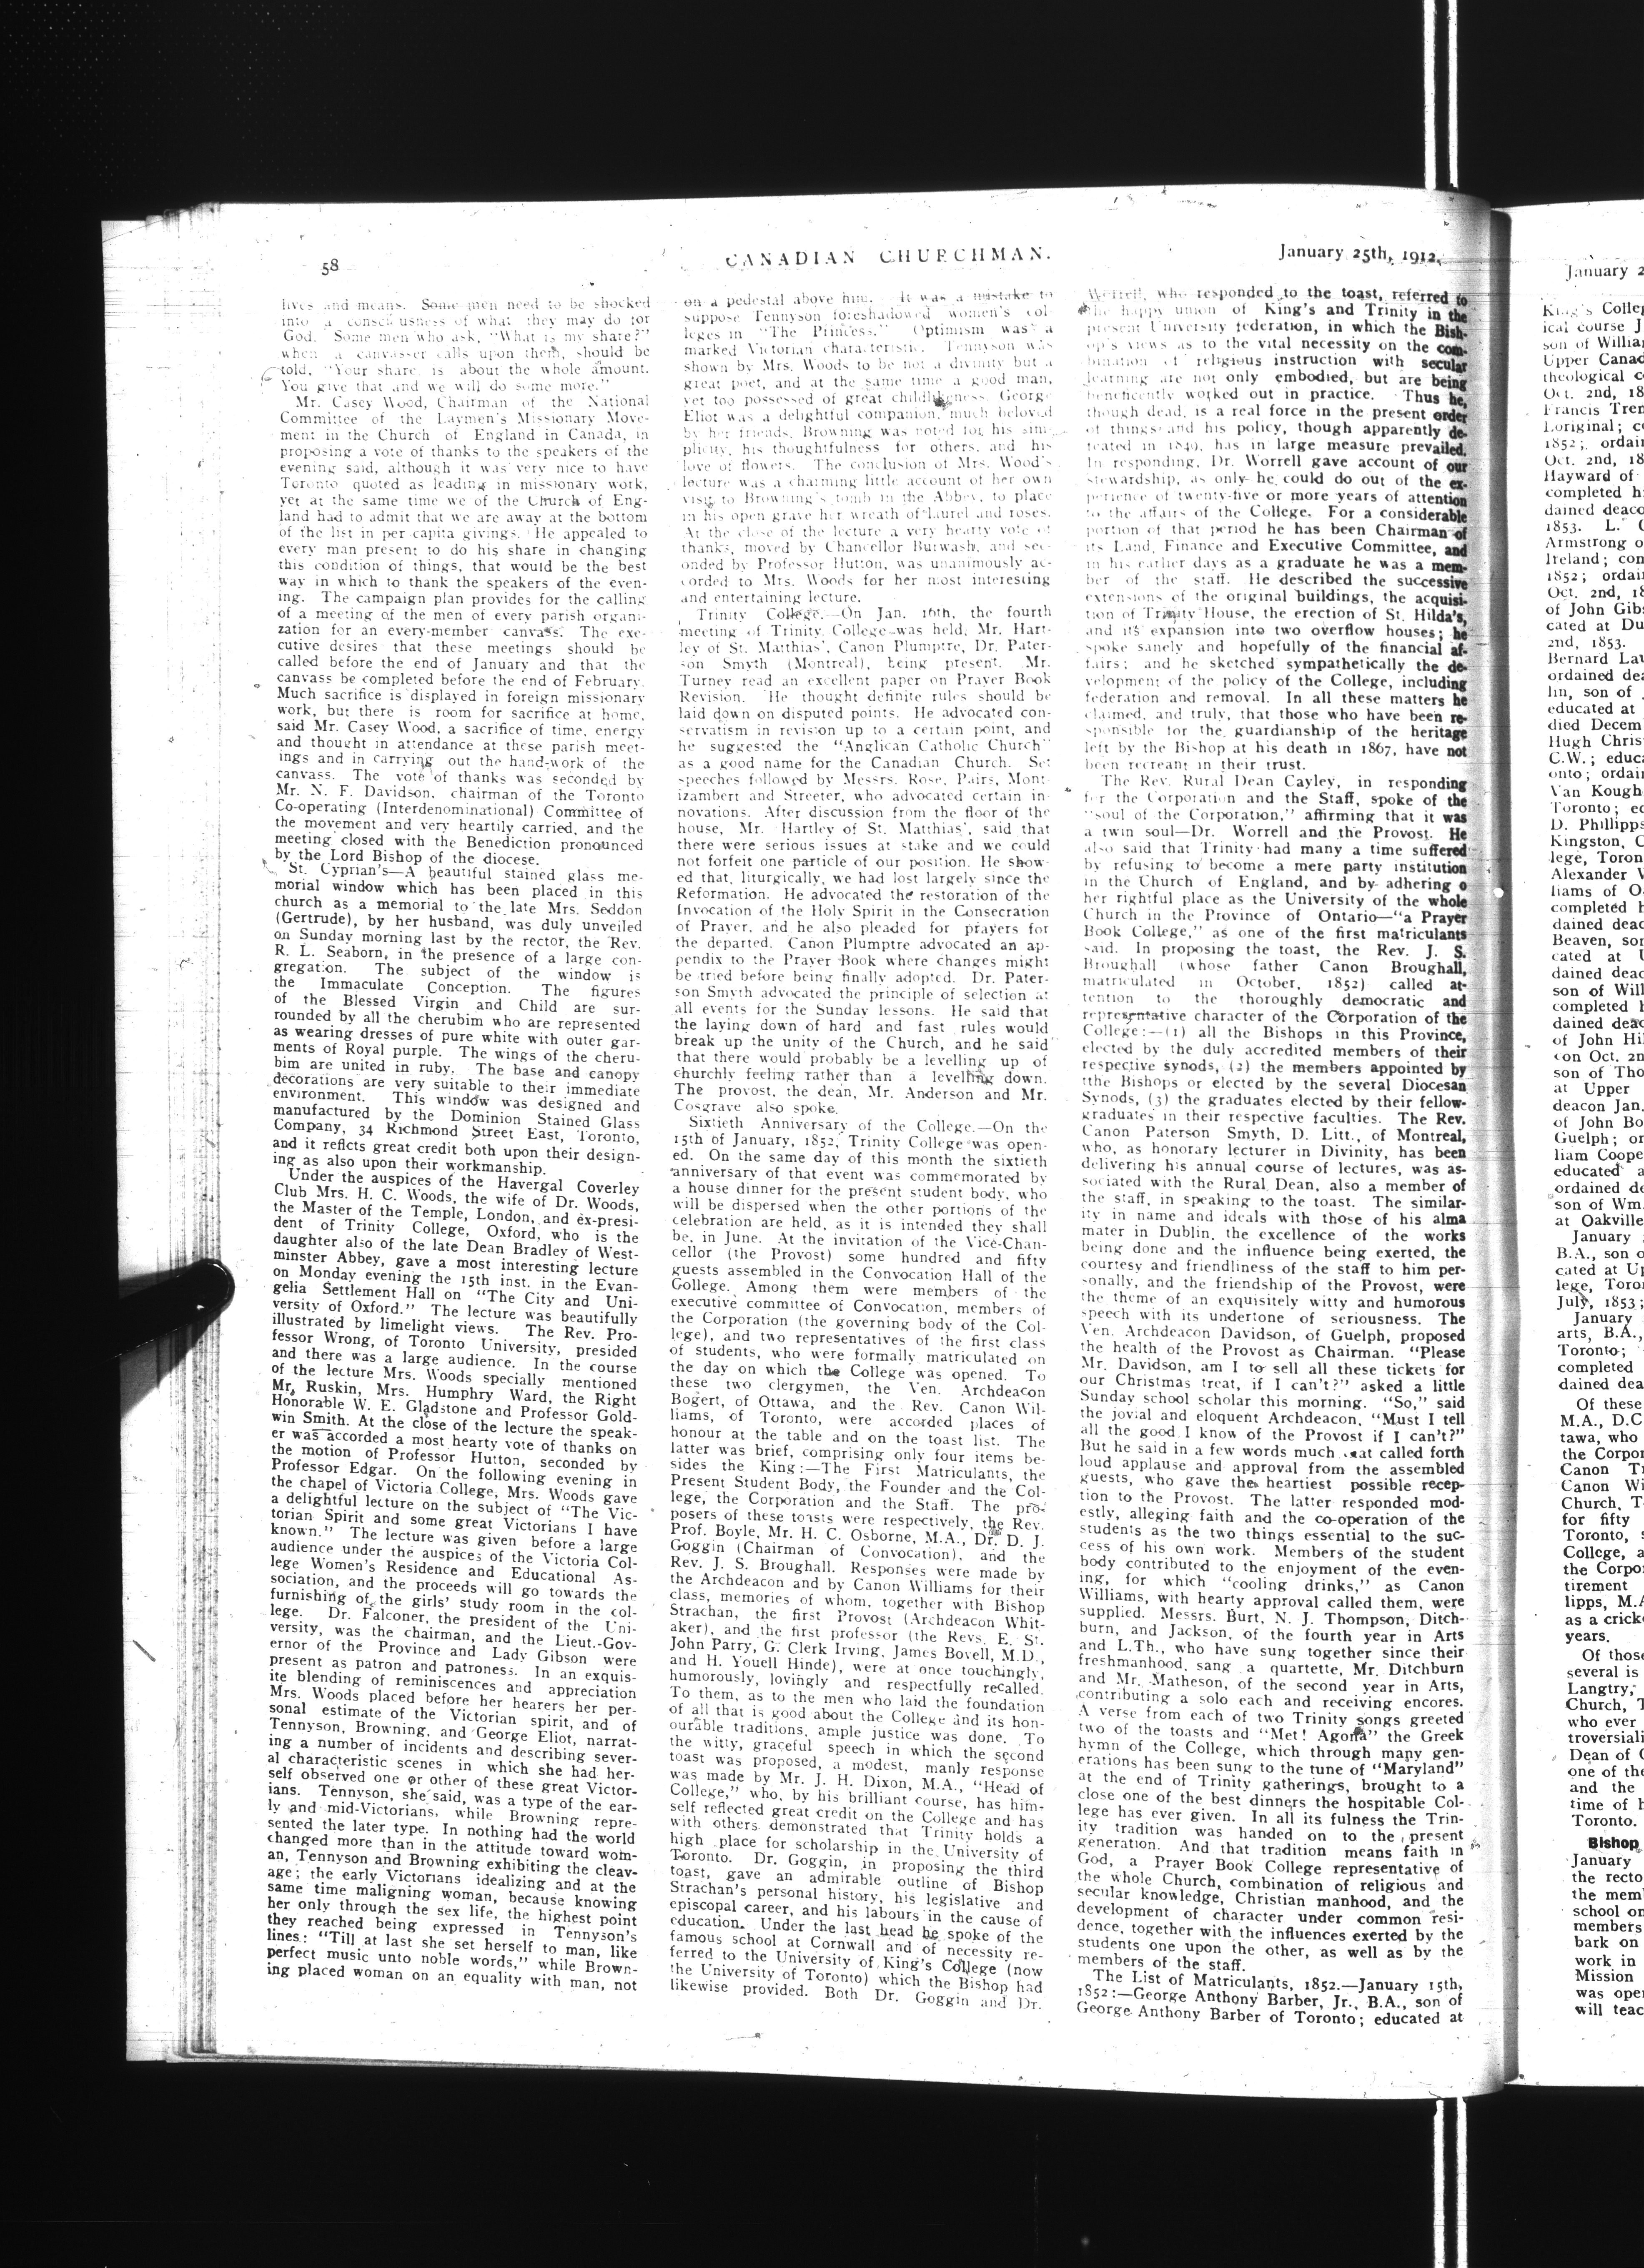 58
CANADIAN CHURCHMAN.
January 25th, 1912.
lives and means. Some men need to be shocked
into a consciousness of what they may do for
God. Some men who ask, "What is my share?"
when a canvasser calls upon them, should be
told, "Your share is about the whole amount.
You give that and we will do some more."
Mr. Casey Wood, Chairman of the National
Committee of the Laymen's Missionary Move-
ment in the Church of England in Canada, in
proposing a vote of thanks to the speakers of the
evening said, although it was very nice to have
Toronto quoted as leading in missionary work,
yet at the same time we of the Church of Eng-
land had to admit that we are away at the bottom
of the list in per capita givings. He appealed to
every man present to do his share in changing
this condition of things, that would be the best
way in which to thank the speakers of the even-
ing. The campaign plan provides for the calling
of a meeting of the men of every parish organi-
zation for an every-member canvass. The exe-
cutive desires that these meetings should be
called before the end of January and that the
canvass be completed before the end of February.
Much sacrifice is displayed in foreign missionary
work, but there is room for sacrifice at home,
said Mr. Casey Wood, a sacrifice of time, energy
and thought in attendance at these parish meet-
ings and in carrying out the hand-work of the
canvass. The vote of thanks was seconded by
Mr. N. F. Davidson, chairman of the Toronto
Co-operating (Interdenominational) Committee of
the movement and very heartily carried, and the
meeting closed with the Benediction pronounced
by the Lord Bishop of the diocese.
St. Cyprian's—A beautiful stained glass me-
morial window which has been placed in this
church as a memorial to the late Mrs. Seddon
(Gertrude), by her husband, was duly unveiled
on Sunday morning last by the rector, the Rev.
R. L. Seaborn, in the presence of a large con-
gregation. The subject of the window is
the Immaculate Conception. The figures
of the Blessed Virgin and Child are sur-
rounded by all the cherubim who are represented
as wearing dresses of pure white with outer gar-
ments of Royal purple. The wings of the cheru-
bim are united in ruby. The base and canopy
decorations are very suitable to their immediate
environment. This window was designed and
manufactured by the Dominion Stained Glass
Company, 34 Richmond Street East, Toronto,
and it reflcts great credit both upon their design-
ing as also upon their workmanship.
Under the auspices of the Havergal Coverley
Club Mrs. H. C. Woods, the wife of Dr. Woods,
the Master of the Temple, London, and ex-presi-
dent of Trinity College, Oxford, who is the
daughter also of the late Dean Bradley of West-
minster Abbey, gave a most interesting lecture
on Monday evening the 15th inst. in the Evan-
gelia Settlement Hall on "The City and Uni-
versity of Oxford." The lecture was beautifully
illustrated by limelight views. The Rev. Pro-
fessor Wrong, of Toronto University, presided
and there was a large audience. In the course
of the lecture Mrs. Woods specially mentioned
Mr. Ruskin, Mrs. Humphry Ward, the Right
Honorable W. E. Gladstone and Professor Gold-
win Smith. At the close of the lecture the speak-
er was accorded a most hearty vote of thanks on
the motion of Professor Hutton, seconded by
Professor Edgar. On the following evening in
the chapel of Victoria College, Mrs. Woods gave
a delightful lecture on the subject of "The Vic-
torian Spirit and some great Victorians I have
known." The lecture was given before a large
audience under the auspices of the Victoria Col-
lege Women's Residence and Educational As-
sociation, and the proceeds will go towards the
furnishing of the girls' study room in the col-
lege. Dr. Falconer, the president of the Uni-
versity, was the chairman, and the Lieut.-Gov-
ernor of the Province and Lady Gibson were
present as patron and patroness. In an exquis-
ite blending of reminiscences and appreciation
Mrs. Woods placed before her hearers her per-
sonal estimate of the Victorian spirit, and of
Tennyson, Browning, and George Eliot, narrat-
ing a number of incidents and describing sever-
al characteristic scenes in which she had her-
self observed one or other of these great Victor-
ians. Tennyson, she said, was a type of the ear-
ly and mid-Victorians, while Browning repre-
sented the later type. In nothing had the world
changed more than in the attitude toward wom-
an, Tennyson and Browning exhibiting the cleav-
age; the early Victorians idealizing and at the
same time maligning woman, because knowing
her only through the sex life, the highest point
they reached being expressed in Tennyson's
lines: "Till at last she set herself to man, like
perfect music unto noble words," while Brown-
ing placed woman on an equality with man, not
on a pedestal above him. It was a mistake to
suppose Tennyson foreshadowed women's col-
leges in "The Princess." Optimism was a
marked Victorian characteristic. Tennyson was
shown by Mrs. Woods to be not a divinity but a
great poet, and at the same time a good man,
yet too possessed of great childlikeness. George
Eliot was a delightful companion, much beloved
by her friends. Browning was noted for his sim-
plicity, his thoughtfulness for others, and his
love of flowers. The conclusion of Mrs. Wood's
lecture was a charming little account of her own
visit to Browning's tomb in the Abbey, to place
in his open grave her wreath of laurel and roses.
At the close of the lecture a very hearty vote of
thanks, moved by Chancellor Burwash, and sec-
onded by Professor Hutton, was unanimously ac-
corded to Mrs. Woods for her most interesting
and entertaining lecture.
Trinity College.—On Jan. 16th, the fourth
meeting of Trinity College was held, Mr. Hart-
ley of St. Matthias', Canon Plumptre, Dr. Pater-
son Smyth (Montreal), being present. Mr.
Turney read an excellent paper on Prayer Book
Revision. He thought definite rules should be
laid down on disputed points. He advocated con-
servatism in revision up to a certain point, and
he suggested the "Anglican Catholic Church"
as a good name for the Canadian Church. Set
speeches followed by Messrs. Rose, Pairs, Mont-
izambert and Streeter, who advocated certain in-
novations. After discussion from the floor of the
house, Mr. Hartley of St. Matthias', said that
there were serious issues at stake and we could
not forfeit one particle of our position. He show-
ed that, liturgically, we had lost largely since the
Reformation. He advocated the restoration of the
Invocation of the Holy Spirit in the Consecration
of Prayer, and he also pleaded for prayers for
the departed. Canon Plumptre advocated an ap-
pendix to the Prayer Book where changes might
be tried before being finally adopted. Dr. Pater-
son Smyth advocated the principle of selection at
all events for the Sunday lessons. He said that
the laying down of hard and fast rules would
break up the unity of the Church, and he said
that there would probably be a levelling up of
churchly feeling rather than a levelling down.
The provost, the dean, Mr. Anderson and Mr.
Cosgrave also spoke.
Sixtieth Anniversary of the College.—On the
15th of January, 1852, Trinity College was open-
ed. On the same day of this month the sixtieth
anniversary of that event was commemorated by
a house dinner for the present student body, who
will be dispersed when the other portions of the
celebration are held, as it is intended they shall
be, in June. At the invitation of the Vice-Chan-
cellor (the Provost) some hundred and fifty
guests assembled in the Convocation Hall of the
Gollege. Among them were members of the
executive committee of Convocation, members of
the Corporation (the governing body of the Col-
lege), and two representatives of the first class
of students, who were formally matriculated on
the day on which the College was opened. To
these two clergymen, the Ven. Archdeacon
Bogert, of Ottawa, and the Rev. Canon Wil-
liams, of Toronto, were accorded places of
honour at the table and on the toast list. The
latter was brief, comprising only four items be-
sides the King:—The First Matriculants, the
Present Student Body, the Founder and the Col-
lege, the Corporation and the Staff. The pro-
posers of these toasts were respectively, the Rev.
Prof. Boyle, Mr. H. C. Osborne, M.A., Dr. D. J.
Goggin (Chairman of Convocation), and the
Rev. J. S. Broughall. Responses were made by
the Archdeacon and by Canon Williams for their
class, memories of whom, together with Bishop
Strachan, the first Provost (Archdeacon Whit-
aker), and the first professor (the Revs. E. St.
John Parry, G. Clerk Irving, James Bovell, M.D.,
and H. Youell Hinde), were at once touchingly,
humorously, lovingly and respectfully recalled.
To them, as to the men who laid the foundation
of all that is good about the College and its hon-
ourable traditions, ample justice was done. To
the witty, graceful speech in which the second
toast was proposed, a modest, manly response
was made by Mr. J. H. Dixon, M.A., "Head of
College," who, by his brilliant course, has him-
self reflected great credit on the College and has
with others demonstrated that Trinity holds a
high place for scholarship in the University of
Toronto. Dr. Goggin, in proposing the third
toast, gave an admirable outline of Bishop
Strachan's personal history, his legislative and
episcopal career, and his labours in the cause of
education. Under the last head he spoke of the
famous school at Cornwall and of necessity re-
ferred to the University of King's College (now
the University of Toronto) which the Bishop had
likewise provided. Both Dr. Goggin and Dr.
Worrell, who responded to the toast, referred to
the happy union of King's and Trinity in the
present University federation, in which the Bish-
op's views as to the vital necessity on the com-
bination of religious instruction with secular
learning are not only embodied, but are being
beneficently worked out in practice. Thus he,
though dead, is a real force in the present order
of things and his policy, though apparently de-
feated in 1849, has in large measure prevailed.
In responding, Dr. Worrell gave account of our
stewardship, as only he could do out of the ex-
perience of twenty-five or more years of attention
to the affairs of the College. For a considerable
portion of that period he has been Chairman of
its Land, Finance and Executive Committee, and
in his earlier days as a graduate he was a mem-
ber of the staff. He described the successive
extensions of the original buildings, the acquisi-
tion of Trinity House, the erection of St. Hilda's,
and its expansion into two overflow houses; he
spoke sanely and hopefully of the financial af-
fairs; and he sketched sympathetically the de-
velopment of the policy of the College, including
federation and removal. In all these matters he
claimed, and truly, that those who have been re-
sponsible for the guardianship of the heritage
left by the Bishop at his death in 1867, have not
been recreant in their trust.
The Rev. Rural Dean Cayley, in responding
for the Corporation and the Staff, spoke of the
"soul of the Corporation," affirming that it was
a twin soul—Dr. Worrell and the Provost. He
also said that Trinity had many a time suffered
by refusing to become a mere party institution
in the Church of England, and by adhering o
her rightful place as the University of the whole
Church in the Province of Ontario—"a Prayer
Book College," as one of the first matriculants
said. In proposing the toast, the Rev. J. S.
Broughall (whose father Canon Broughall,
matriculated in October, 1852) called at-
tention to the thoroughly democratic and
representative character of the Corporation of the
College:—(1) all the Bishops in this Province,
elected by the duly accredited members of their
respective synods, (2) the members appointed by
tthe Bishops or elected by the several Diocesan
Synods, (3) the graduates elected by their fellow-
graduates in their respective faculties. The Rev.
Canon Paterson Smyth, D. Litt., of Montreal,
who, as honorary lecturer in Divinity, has been
delivering his annual course of lectures, was as-
sociated with the Rural Dean, also a member of
the staff, in speaking to the toast. The similar-
ity in name and ideals with those of his alma
mater in Dublin, the excellence of the works
being done and the influence being exerted, the
courtesy and friendliness of the staff to him per-
sonally, and the friendship of the Provost, were
the theme of an exquisitely witty and humorous
speech with its undertone of seriousness. The
Ven. Archdeacon Davidson, of Guelph, proposed
the health of the Provost as Chairman. "Please
Mr. Davidson, am I to sell all these tickets for
our Christmas treat, if I can't?" asked a little
Sunday school scholar this morning. "So," said
the jovial and eloquent Archdeacon, "Must I tell
all the good I know of the Provost if I can't?"
But he said in a few words much that called forth
loud applause and approval from the assembled
guests, who gave the heartiest possible recep-
tion to the Provost. The latter responded mod-
estly, alleging faith and the co-operation of the
students as the two things essential to the suc-
cess of his own work. Members of the student
body contributed to the enjoyment of the even-
ing, for which "cooling drinks," as Canon
Williams, with hearty approval called them, were
supplied. Messrs. Burt, N. J. Thompson, Ditch-
burn, and Jackson, of the fourth year in Arts
and L.Th., who have sung together since their
freshmanhood, sang a quartette, Mr. Ditchburn
and Mr. Matheson, of the second year in Arts,
contributing a solo each and receiving encores.
A verse from each of two Trinity songs greeted
two of the toasts and "Met! Agona" the Greek
hymn of the College, which through many gen-
erations has been sung to the tune of "Maryland"
at the end of Trinity gatherings, brought to a
close one of the best dinners the hospitable Col-
lege has ever given. In all its fulness the Trin-
ity tradition was handed on to the present
generation. And that tradition means faith in
God, a Prayer Book College representative of
the whole Church, combination of religious and
secular knowledge, Christian manhood, and the
development of character under common resi-
dence, together with the influences exerted by the
students one upon the other, as well as by the
members of the staff.
The List of Matriculants, 1852.—January 15th,
1852:—George Anthony Barber, Jr., B.A., son of
George Anthony Barber of Toronto; educated at
January 2
King's Colleg
ical course J
son of Willia
Upper Canad
theological c
Oct. 2nd, 18
Francis Tren
Loriginal; c
1852; ordai
Oct. 2nd, 18
Hayward of
completed h
dained deaco
1853. L. C
Armstrong o
Ireland; con
1852; ordai
Oct. 2nd, 18
of John Gibs
cated at Du
2nd, 1853.
Bernard Lau
ordained dea
lin, son of
educated at
died Decem
Hugh Chris
C.W.; educa
onto; ordai
Van Kough
Toronto; ed
D. Phillipps
Kingston, C
lege, Toron
Alexander W
liams of O
completed h
dained deac
Beaven, son
cated at U
dained deac
son of Will
completed h
dained deac
of John Hil
on Oct. 2n
son of Tho
at Upper
deacon Jan.
of John Bo
Guelph; or
liam Coope
educated a
ordained de
son of Wm.
at Oakville
January
B.A., son o
cated at Up
lege, Toron
July, 1853;
January
arts, B.A.,
Toronto;
completed
dained dea
Of these
M.A., D.C
tawa, who
the Corpor
Canon Ti
Canon Wi
Church, T
for fifty
Toronto, s
College, a
the Corpo
tirement
lipps, M.A
as a crick
years.
Of those
several is
Langtry,
Church, T
who ever
troversiali
Dean of C
one of the
and the
time of h
Toronto.
Bishop
January
the recto
the mem
school on
members
bark on
work in
Mission
was oper
will teac